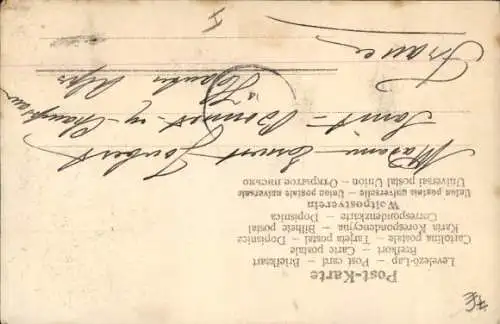 Post-Karte
Levelező-Lap – Post card – Briefkaart
Brefkort – Carte postale
Cartolina postale – Tarjeta postal – Dopisnice
Karta Korespondencyjna – Bilhete postal
Correspondenzkarte – Dopisnica
Weltpostverein
Union postale universelle – Union postale universale
Universal postal Union – Открытое письмо
Madame Ernest Joubert
Saint-Bonnet-en-Champsaur
Hautes Alpes
France